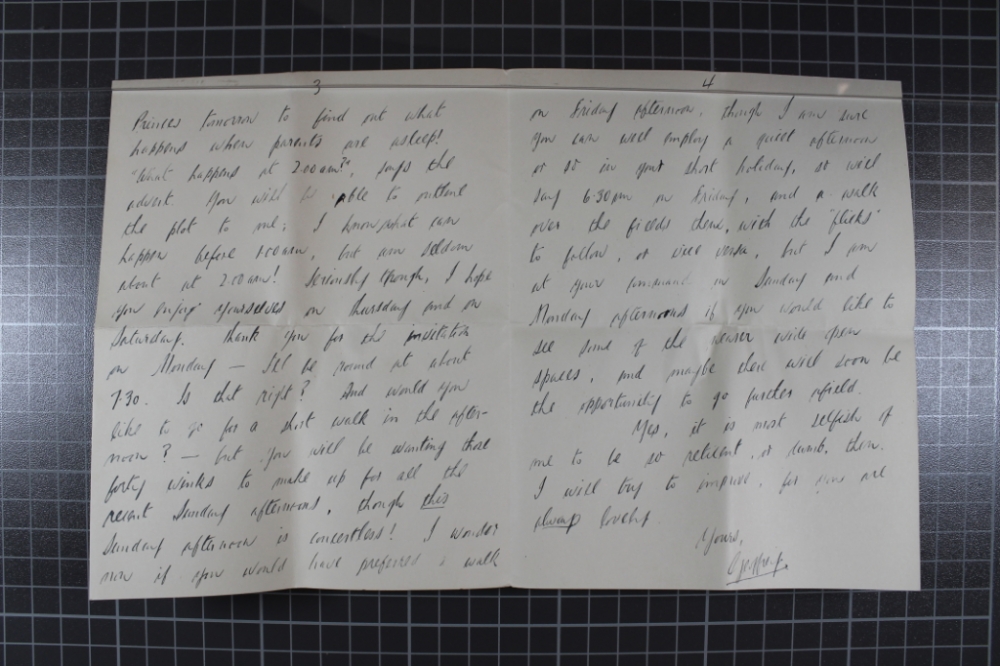 3
Princes tomorrow to find out what
happens when parents are asleep!
"What happens at 2.00am?", says the
advert. You will be able to outline
the plot to me; I know what can
happen before 1.00am, but am seldom
about at 2.00am! Seriously though, I hope
you enjoy yourselves on Thursday and on
Saturday. Thank you for the invitation
on Monday — I'll be round at about
7.30. Is that right? And would you
like to go for a short walk in the after-
noon? — but you will be wanting those
forty winks to make up for all the
recent Sunday afternoons, though this
Sunday afternoon is concertless! I wonder
now if you would have preferred a walk
4
on Friday afternoon, though I am sure
you can well employ a quiet afternoon
or so in your short holiday, so will
say 6.30pm on Friday, and a walk
over the fields then, with the "flicks"
to follow, or vice versa, but I am
at your command on Sunday and
Monday afternoons if you would like to
see some of the nearer wide open
spaces, and maybe there will soon be
the opportunity to go further afield.
Yes, it is most selfish of
me to be so reticent, or dumb, then.
I will try to improve, for yours are
always lovely.
Yours,
Geoffrey.